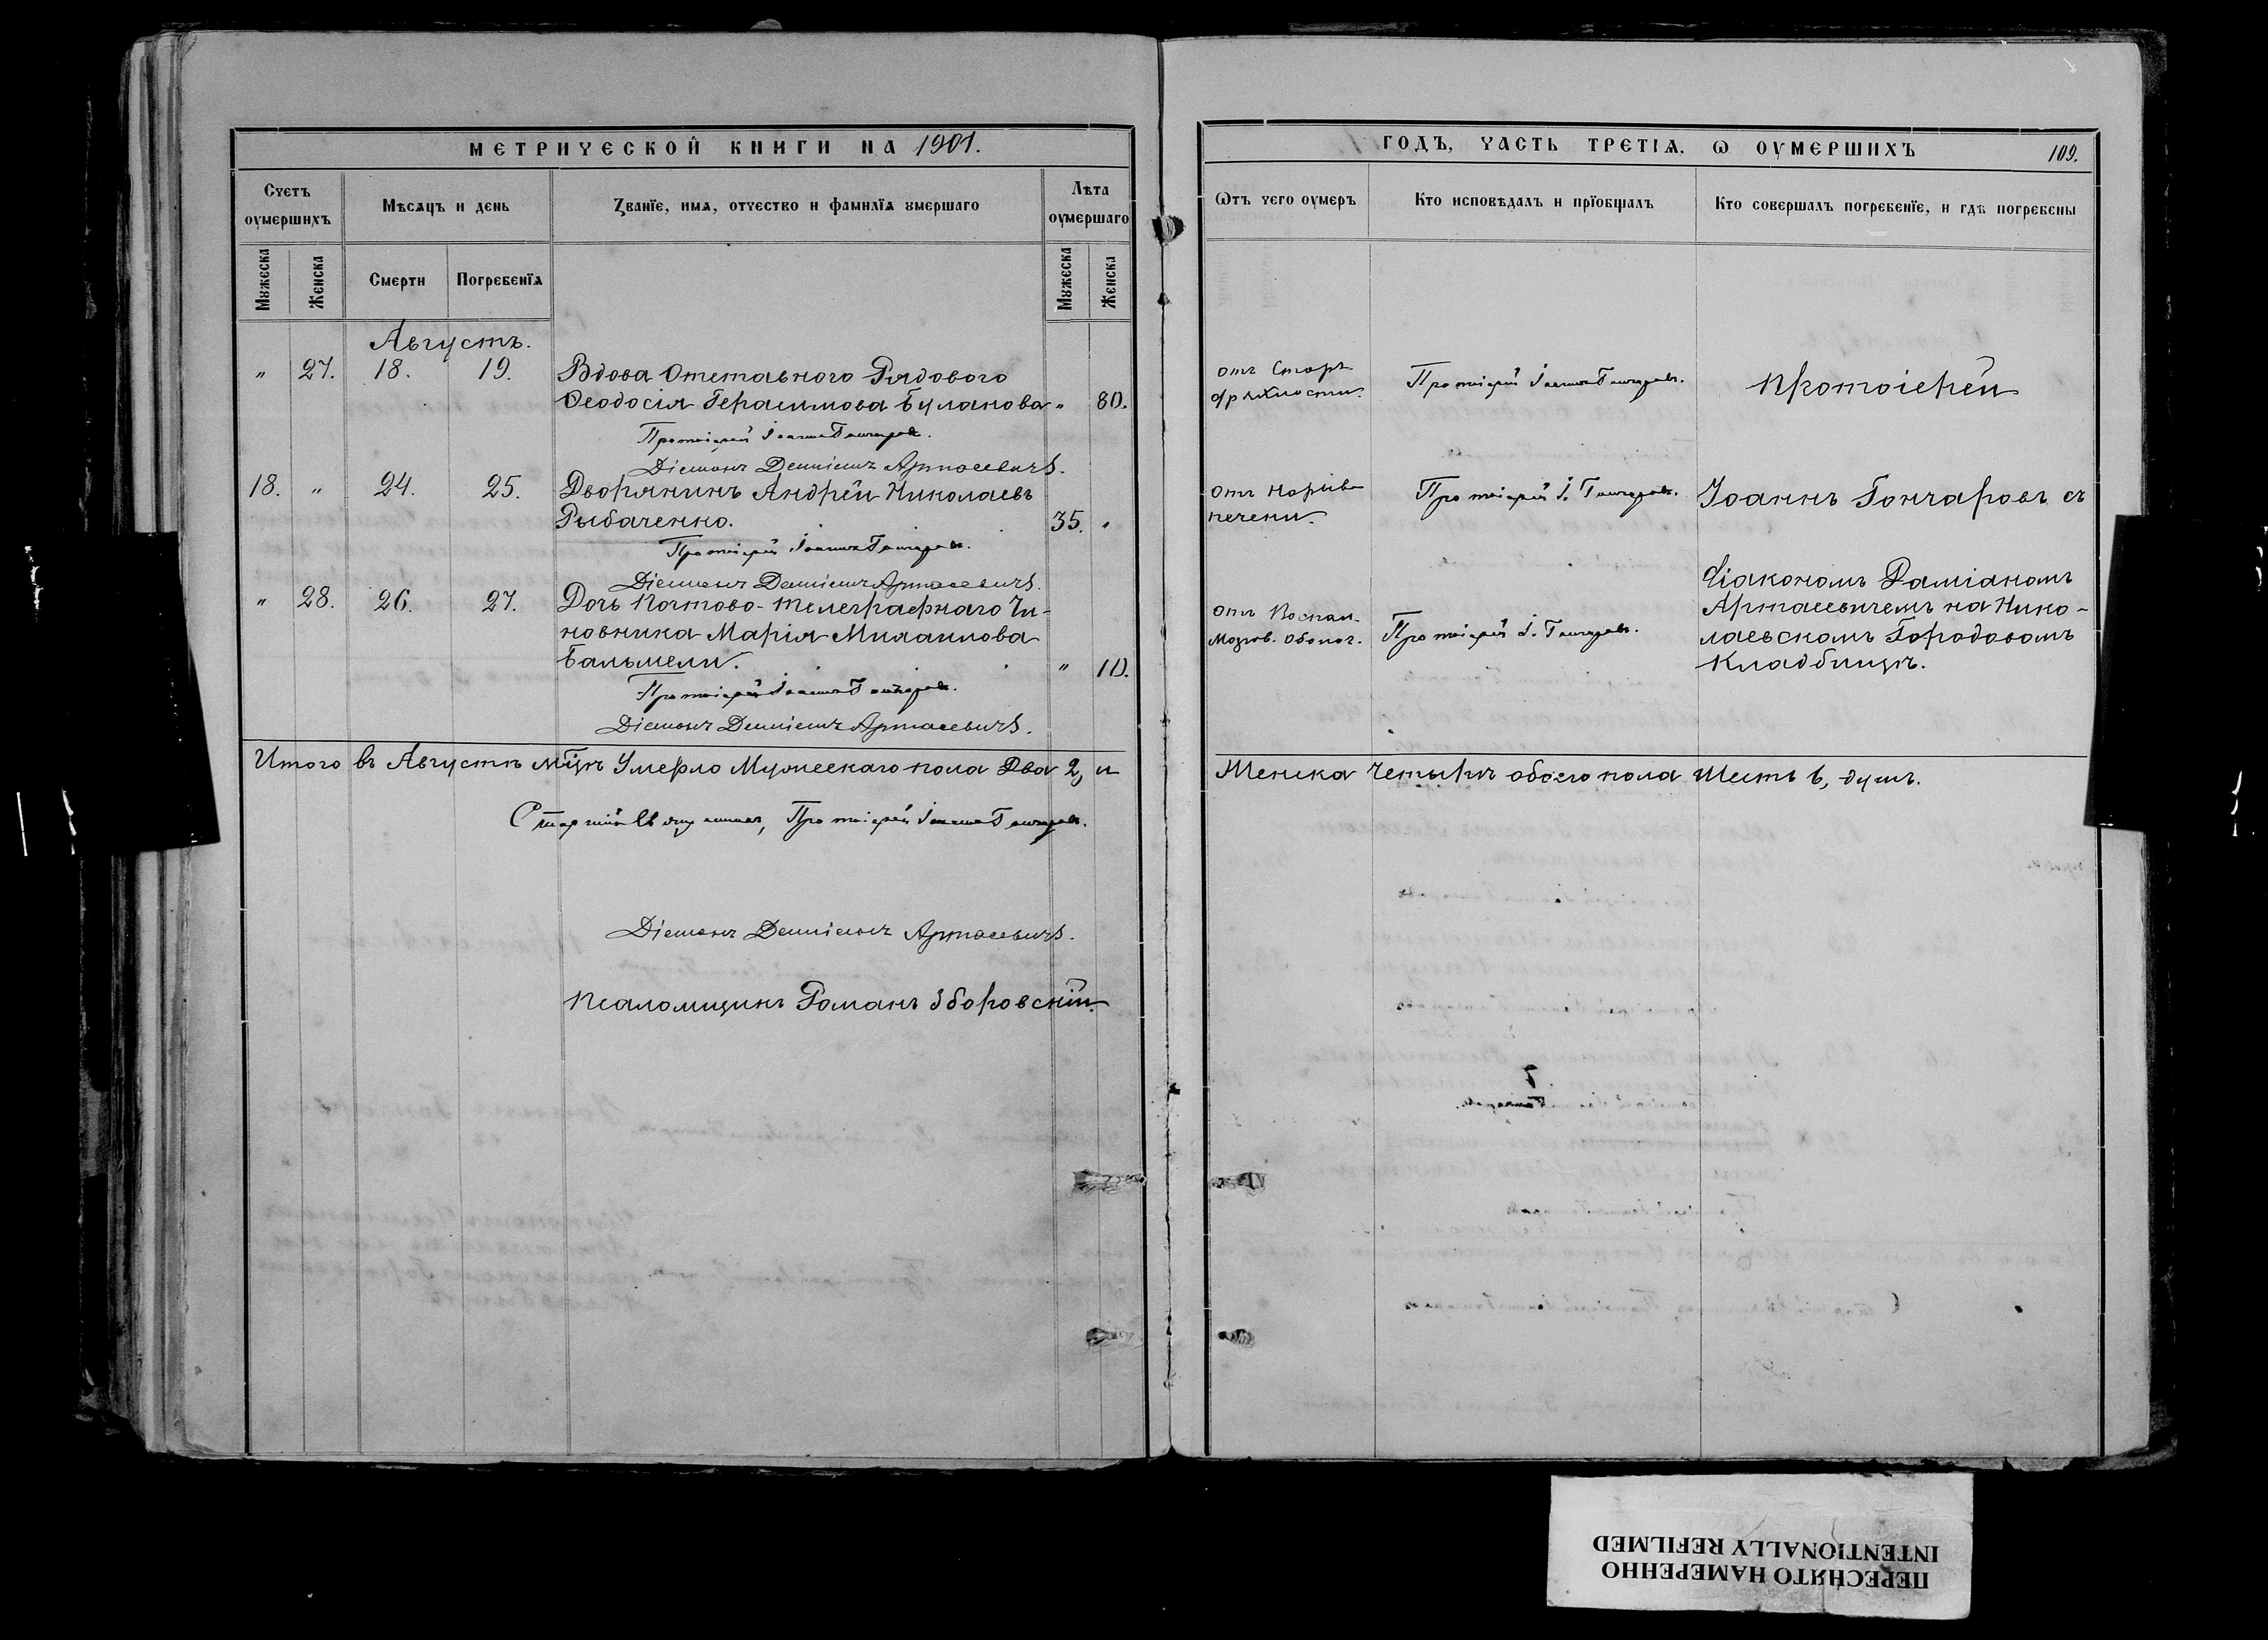 МЕТРИЧЕСКОЙ КНИГИ НА 1901.
Счетъ оумершихъ
Мѣсяцъ и день
Званїе, имя, отчество и фамилїя умершаго
Лѣта оумершаго
Мужеска
Женска
Смерти
Погребенїя
Мужеска
Женска
Августъ.
" 27. 18. 19. Вдова Отставного Рядового
Ѳеодосія Герасимова Буланова " 80.
Протоіерей Іоаннъ Гончаровъ.
Діаконъ Даміанъ Арташевичъ.
18. " 24. 25. Дворянинъ Андрей Николаевъ
Рыбаченко. 35. "
Протоіерей Іоаннъ Гончаровъ.
Діаконъ Даміанъ Арташевичъ.
" 28. 26. 27. Дочь Почтово-Телеграфнаго Чи-
новника Марія Михаилова
Бальмели. " 10.
Протоіерей Іоаннъ Гончаровъ.
Діаконъ Даміанъ Арташевичъ.
Итого въ Августѣ мѣсяцѣ Умерло Мужескаго пола Два 2, и
Старшій Священникъ, Протоіерей Іоаннъ Гончаровъ.
Діаконъ Даміанъ Арташевичъ.
Псаломщикъ Романъ Зборовскій.
ГОДЪ, ЧАСТЬ ТРЕТІЯ, Ѡ ОУМЕРШИХЪ 109.
Ѿтъ чего оумеръ
Кто исповѣдалъ и прїобщалъ
Кто совершалъ погребенїе, и гдѣ погребены
отъ Стар. Протоіерей Іоаннъ Гончаровъ. Протоіерей
дряхлости.
Отъ Нарыва Протоіерей І. Гончаровъ. Іоаннъ Гончаровъ съ
печени.
Діакономъ Даміаномъ
Арташевичемъ на Нико-
отъ Воспал. Протоіерей І. Гончаровъ. лаевскомъ Городовомъ
Мозгов. оболоч. Кладбищѣ.
Женска Четыре обоего пола Шесть 6, душъ.
ПЕРЕСНЯТО НАМЕРЕННО
INTENTIONALLY REFILMED